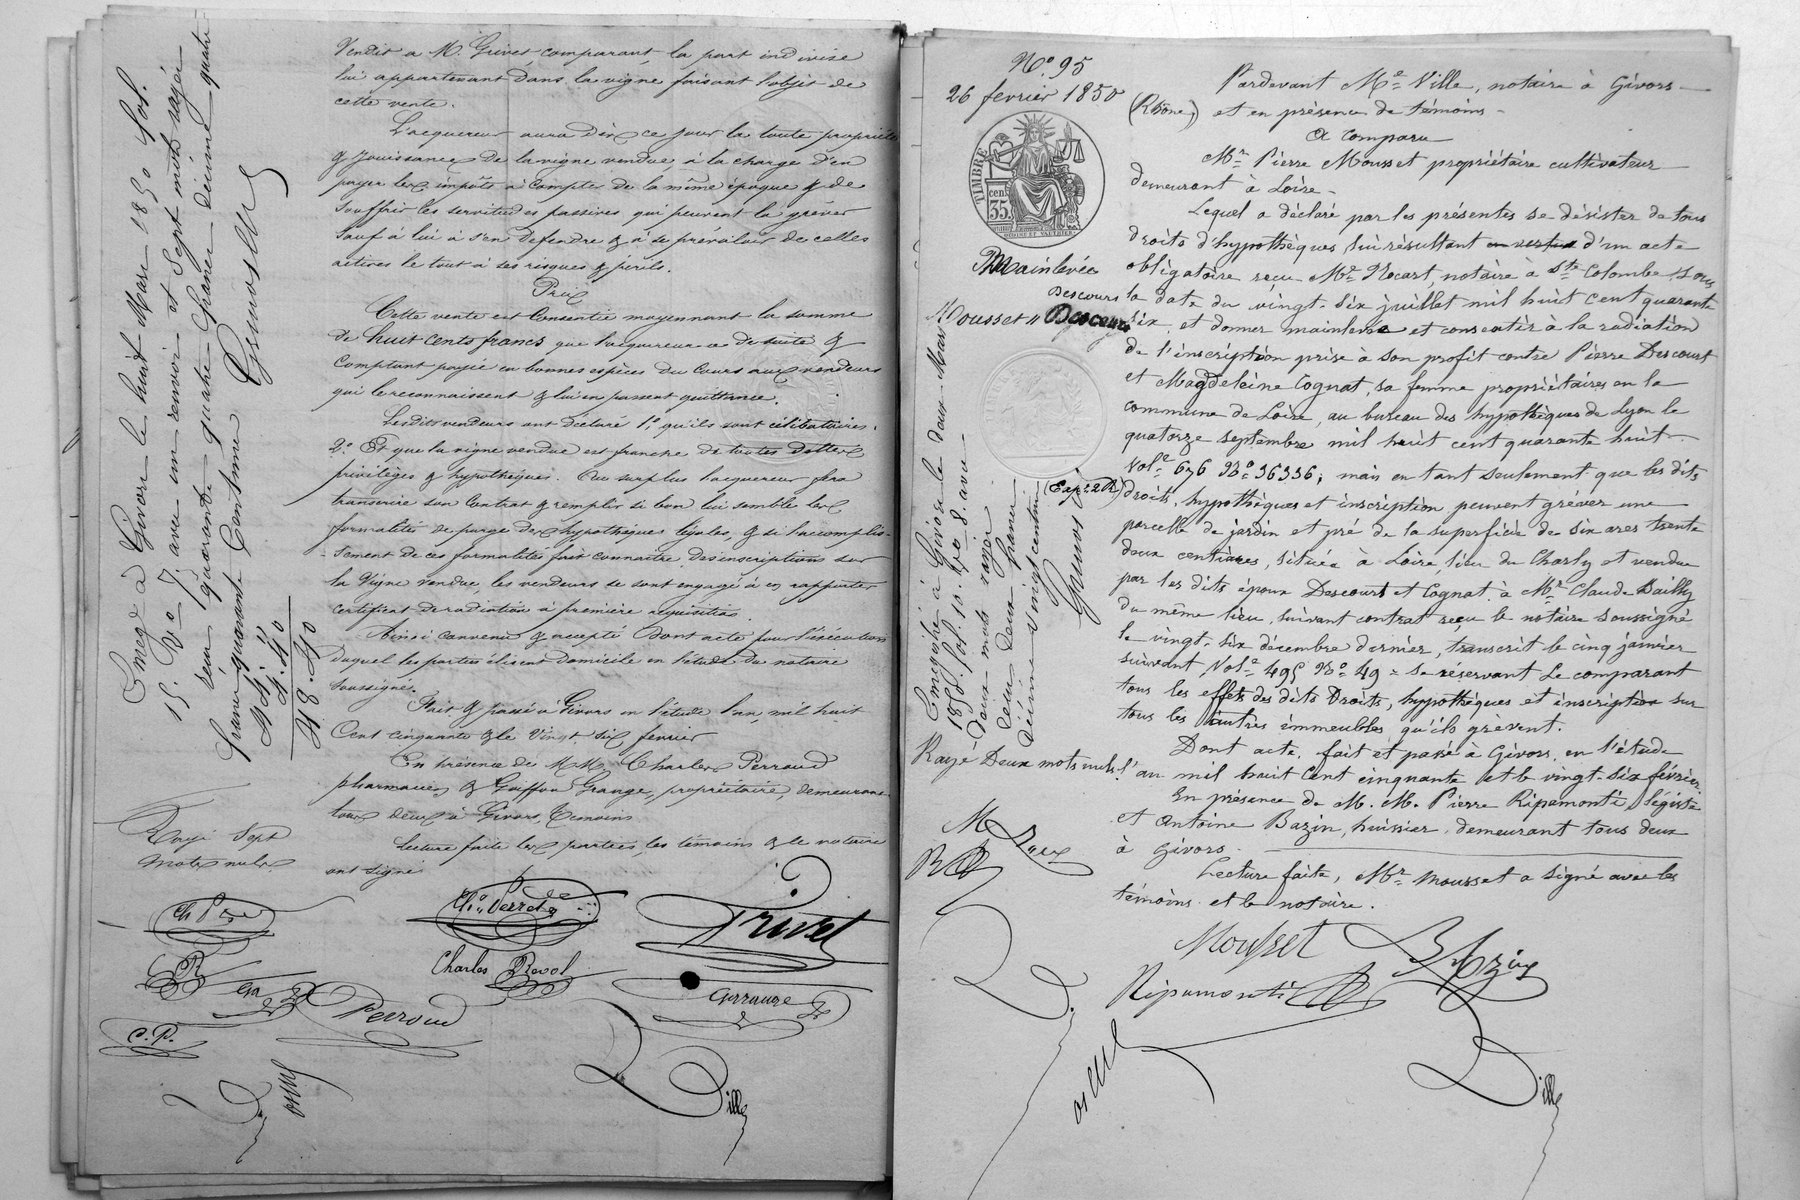 Vendit à M. Grivet, comparant, la part indivise
lui appartenant dans la vigne faisant l'objet de
cette vente.
L'acquereur aura dès ce jour la toute propriété
& jouissance de la vigne vendue, à la charge d'en
payer les impôts à compter de la même époque & de
souffrir les servitudes passives qui peuvent la grèver
sauf à lui à s'en défendre & à se prévaloir de celles
actives le tout à ses risques & périls.
Prix
Cette vente est Consentie moyennant la somme
de huit cents francs que l'acquereur a de suite &
Comptant payée en bonnes espèces du Cours aux vendeurs
qui le reconnaissent & lui en passent quittance.
Lesdits vendeurs ont déclaré 1.° qu'ils sont célibataires.
2.° Et que la vigne vendue est franche de toutes dettes
privilèges & hypothèques. Au surplus l'acquereur fera
transcrire son Contrat & remplir si bon lui semble les
formalités de purge des hypothèques légales, & si l'accomplis-
-sement de ces formalités fait connaître des inscriptions sur
la Vigne vendue, les vendeurs se sont engagé à en rapporter
certificat de radiation à première réquisition.
Ainsi convenu & accepté Dont acte pour l'éxécution
duquel les parties élisent domicile en l'étude du notaire
soussigné.
Fait & passé à Givors en l'étude l'an mil huit
Cent cinquante & le Vingt six fevrier
En présence de M.M. Charles Perroud
pharmacien & Goiffon Grange, propriétaire, demeurant
tous deux à Givors, Témoins
Lecture faite les parties, les témoins & le notaire
ont signé
Rayé Sept
mots nuls.
Enreg. à Givors le huit Mars 1850 Fol.
15. V° 7 avec un renvoi et Sept mots rayés
reçu quarante quatre francs décime quatre
francs quarante Centimes
44
4.40
48.40
Perroud
Charles Revol
Grivet
Ville
C.P.
N.° 95
26 fevrier 1850
TIMBRE
35
Mainlevée
Descours
Mousset "
Pardevant M.e Ville, notaire à Givors
(Rhône) et en présence de témoins
A comparu
M.r Pierre Mousset propriétaire cultivateur
demeurant à Loire.
Lequel a déclaré par les présentes se désister de tous
droits d'hypothèques, lui résultant en vertu d'un acte
obligatoire reçu M.e Rocart, notaire à Ste Colombe, sous
la date du vingt-six juillet mil huit cent quarante
six, et donner mainlevée et consentir à la radiation
de l'inscription prise à son profit contre Pierre Descourt
et Magdeleine Cognat, sa femme propriétaires en la
commune de Loire, au bureau des hypothèques de Lyon le
quatorze septembre mil huit cent quarante huit
Vol.e 676 N.° 36336; mais en tant seulement que les dits
droits, hypothèques et inscription peuvent grèver une
parcelle de jardin et pré de la superficie de six ares trente
deux centiares, située à Loire, lieu du Charly et vendue
par les dits époux Descourt et Cognat à M.r Claude Dailly
du même lieu, suivant contrat reçu le notaire soussigné
le vingt-six décembre dernier, transcrit le cinq janvier
suivant Vol.e 495 N.° 49 = se réservant le comparant
tous les effets des dits Droits, hypothèques et inscription sur
tous les autres immeubles qu'ils grèvent.
Dont acte, fait et passé à Givors, en l'étude
l'an mil huit cent cinquante et le vingt-six février
En présence de M.M. Pierre Ripamonti, légiste
et Antoine Bazin, huissier, demeurant tous deux
à Givors.
Lecture faite, M.r Mousset a signé avec les
témoins et le notaire.
Rayé Deux mots nuls
Enregistré à Givors le deux Mars
1850. Fol. 10. R° 8. avec
Deux mots rayés
reçu deux francs
décime vingt centimes
(Exp.on 2R)
Mousset
Bazin
Ripamonti
Ville